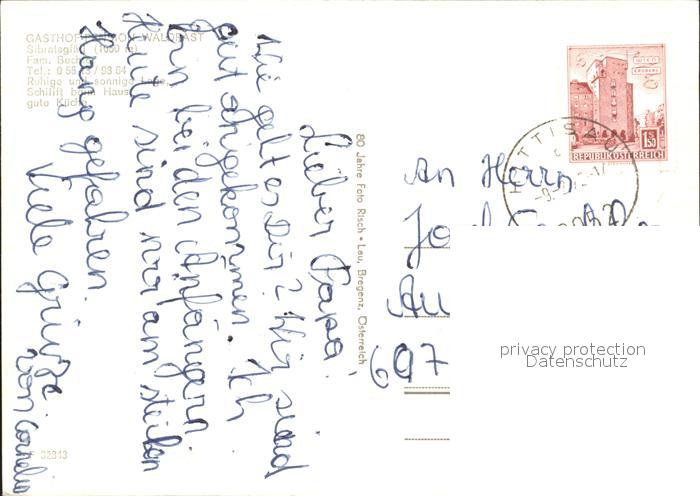 GASTHOF PENSION WALDRAST
Sibratsgfäll (1000 m)
Fam. Bech
Tel.: 0 55 13 / 93 64
Ruhige und sonnige Lage
Schilift beim Haus
gute Küche
Lieber Papa!
Wie geht es Dir? Wir sind
gut angekommen. Ich
bin bei den Anfängern
Heute sind wir am steilen
Hang gefahren.
Viele Grüße
von Cornelia
F 32813
80 Jahre Foto Risch • Lau, Bregenz, Österreich
WIEN
ERDBERG
S 1.50
REPUBLIK ÖSTERREICH
HITTISAU
An Herrn
Au
697
privacy protection
Datenschutz